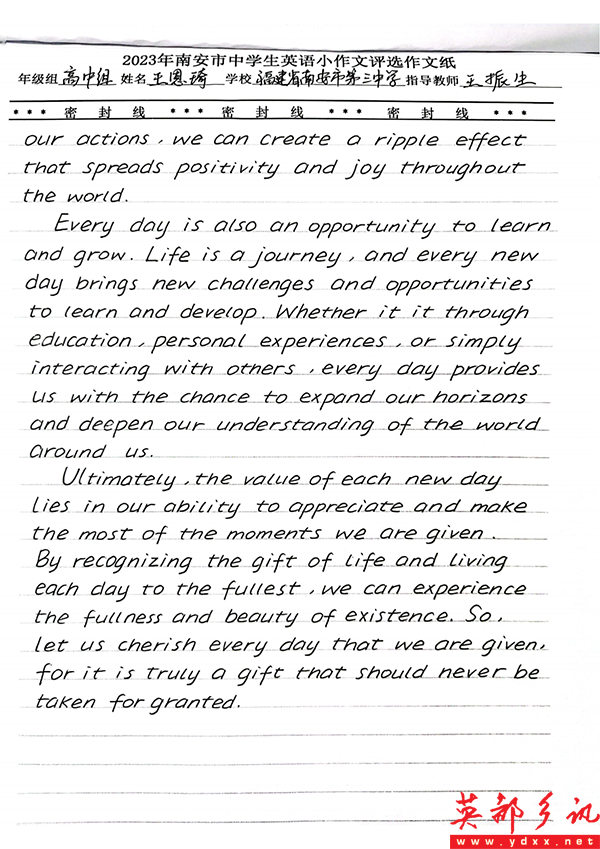 2023年南安市中学生英语小作文评选作文纸
年级组 高中组 姓名 王恩琦 学校 福建省南安市第三中学 指导教师 王振生
*** 密 封 线 *** 密 封 线 *** 密 封 线 ***
our actions, we can create a ripple effect
that spreads positivity and joy throughout
the world.
Every day is also an opportunity to learn
and grow. Life is a journey, and every new
day brings new challenges and opportunities
to learn and develop. Whether it it through
education, personal experiences, or simply
interacting with others, every day provides
us with the chance to expand our horizons
and deepen our understanding of the world
around us.
Ultimately, the value of each new day
lies in our ability to appreciate and make
the most of the moments we are given.
By recognizing the gift of life and living
each day to the fullest, we can experience
the fullness and beauty of existence. So,
let us cherish every day that we are given,
for it is truly a gift that should never be
taken for granted.
英都乡讯
www.ydxx.net